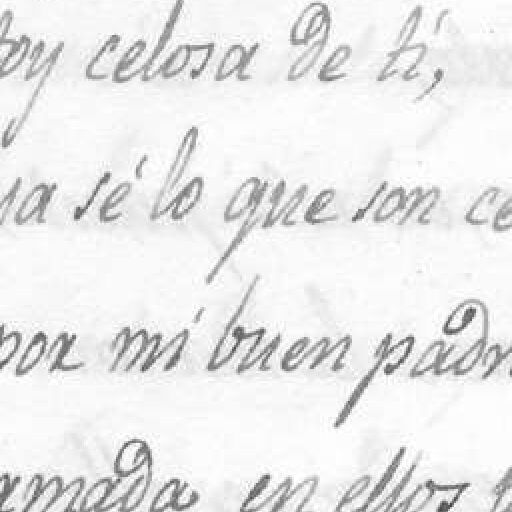 toy celosa de tí,
ya sé lo que son ce
por mi buen padr
amada en ellos